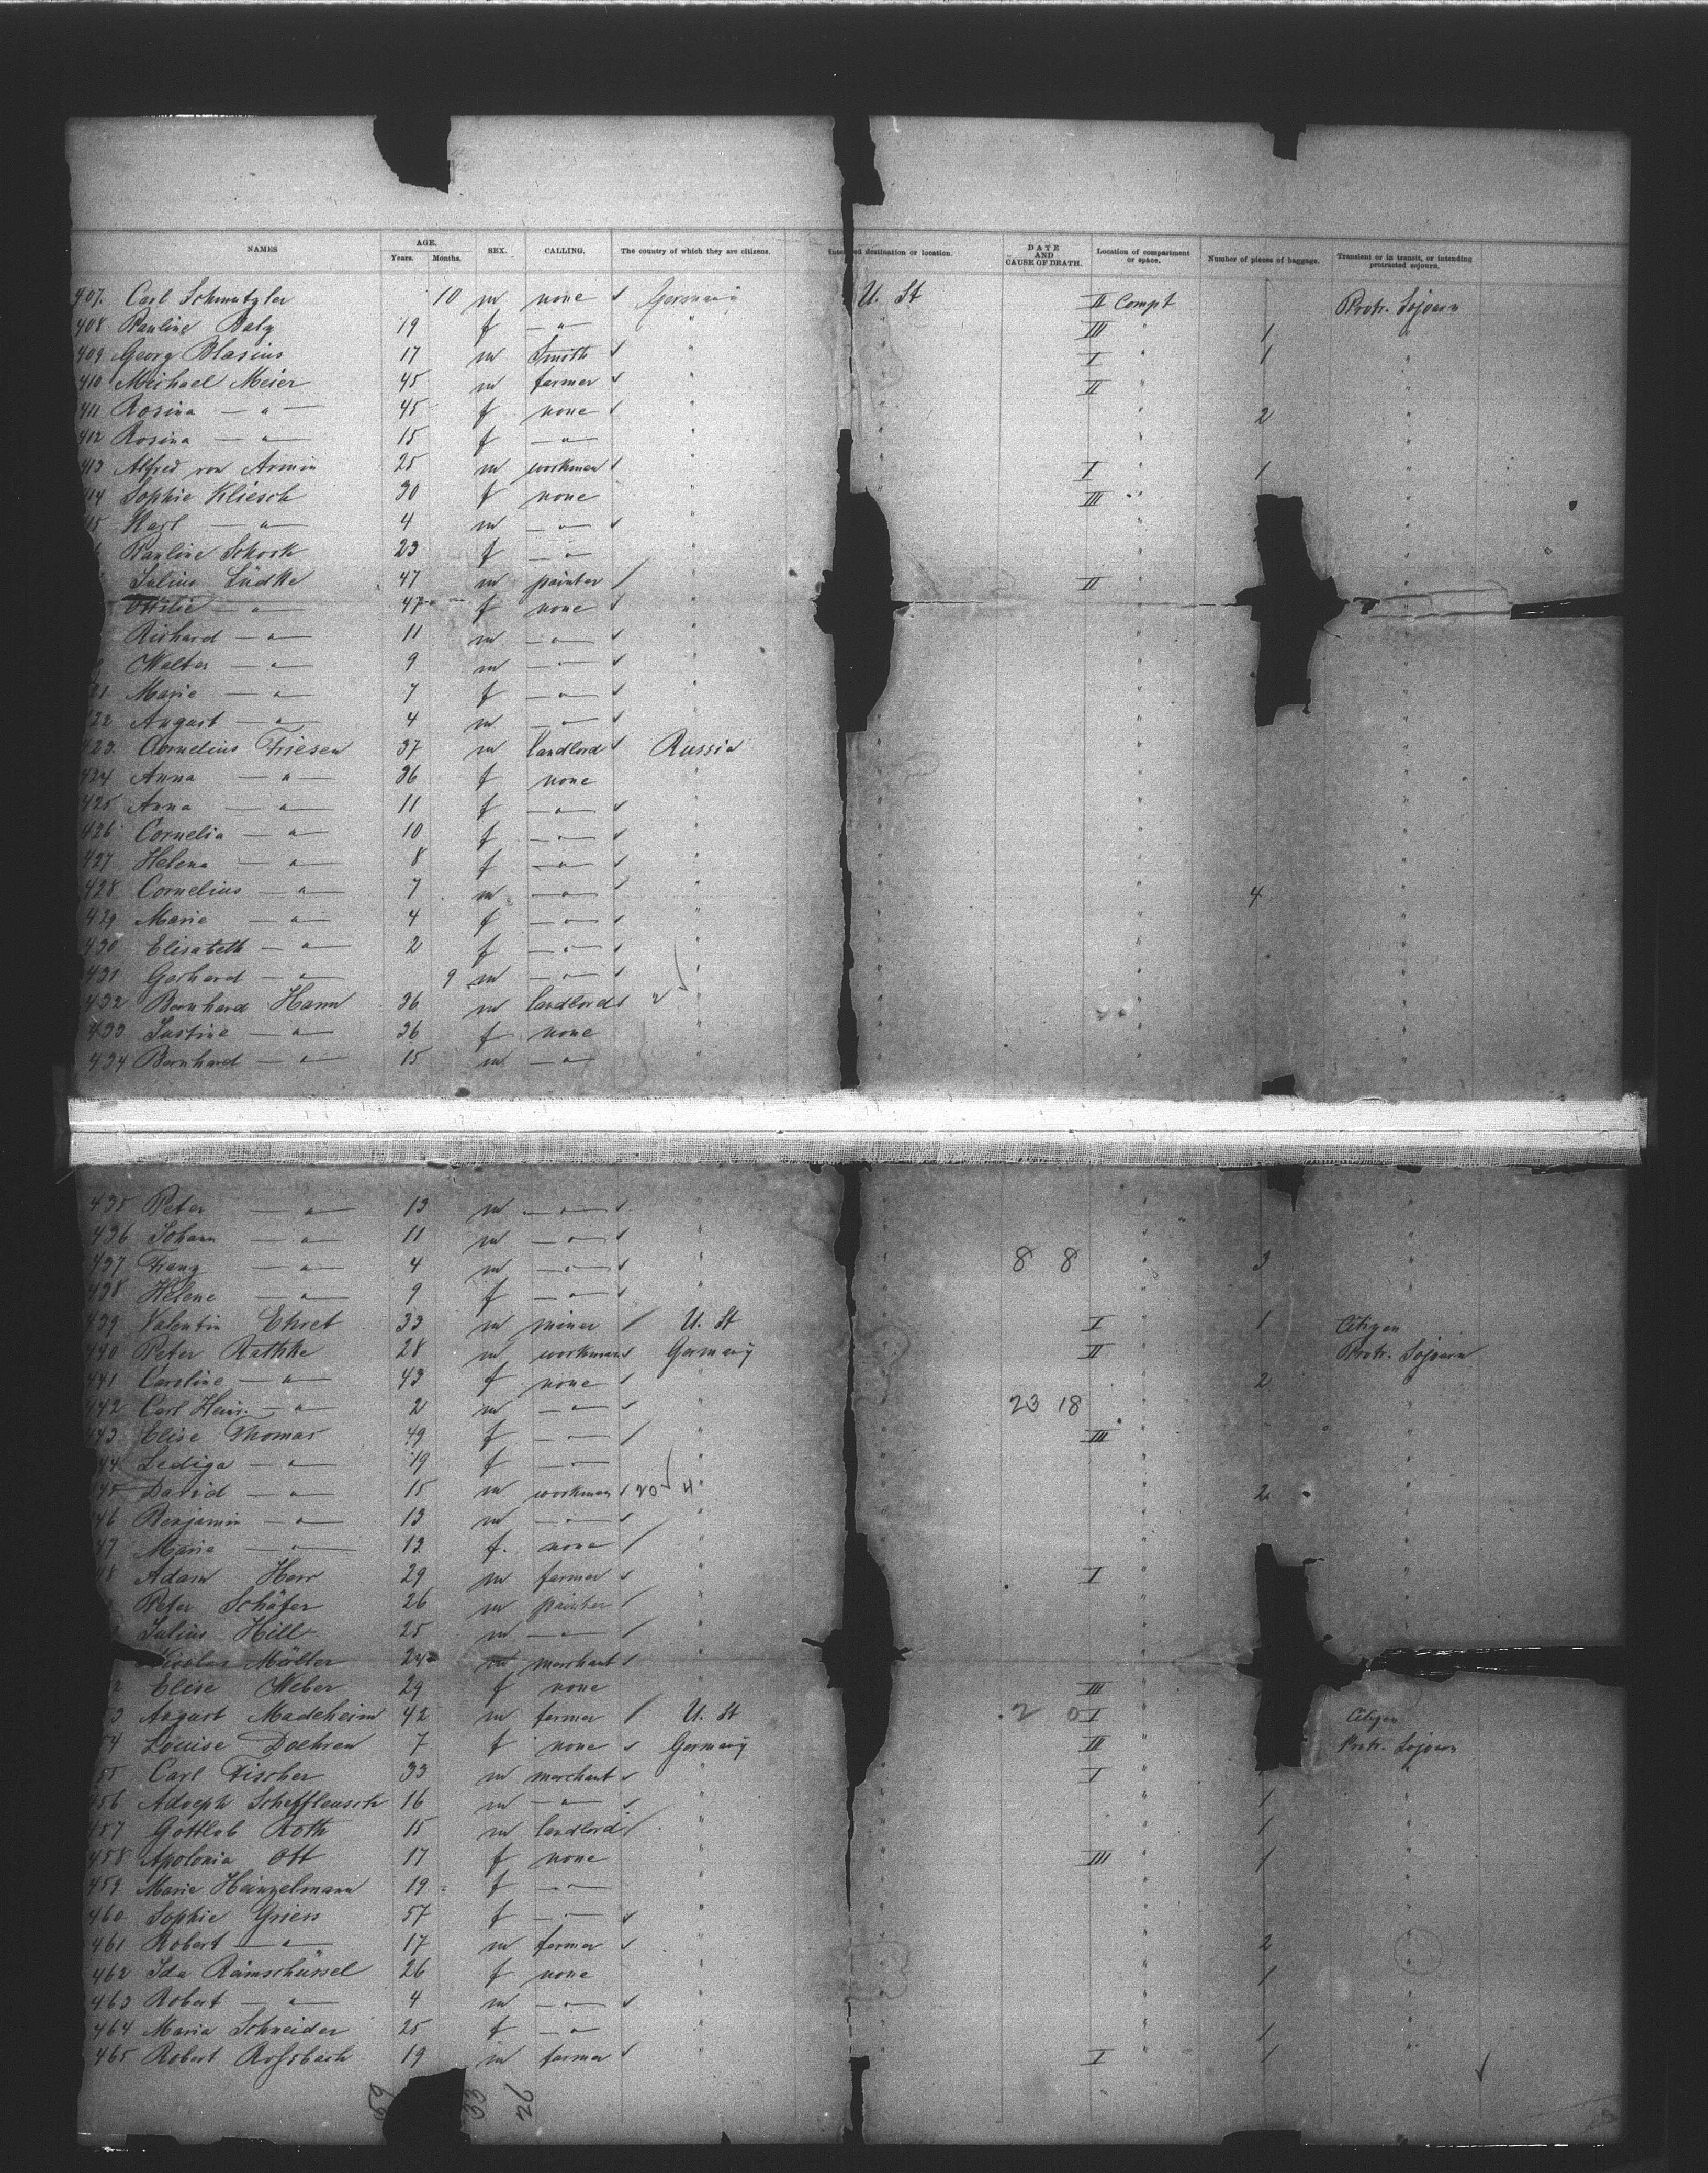 NAMES AGE. Years. Months. SEX. CALLING. The country of which they are citizens. Intended destination or location. DATE AND CAUSE OF DEATH. Location of compartment or space. Number of pieces of baggage. Transient or in transit, or intending protracted sojourn.
407. Carl Schmutzler 10 m none Germany U. St II Compt Protr. Sojourn
408 Pauline 19 f — " — " " III " 1
409 Georg Blasius 17 m Smith " " I " 1 "
410 Michael Meier 45 m farmer " " II " "
411 Rosina — " — 45 f none " " " 2 "
412 Rosina — " — 15 f — " — " " " "
413 Alfred von Armin 25 m workman " " I " 1 "
414 Sophie Kliesch 30 f none " " III " "
415 Karl — " — 4 m — " — " " " "
Pauline Schork 23 f — " — " " " "
Julius Lüdke 47 m painter " " II " "
Ottilie — " — 47 f none " "
Richard — " — 11 m — " — " " "
Walter — " — 9 m — " — " " "
21 Marie — " — 7 f — " — " " "
22 August — " — 4 m — " — " " " "
423. Cornelius Friesen 37 m landlord Russia " " "
424 Anna — " — 36 f none " " " "
425 Anna — " — 11 f — " — " " " "
426 Cornelia — " — 10 f — " — " " " "
427 Helena — " — 8 f — " — " " " "
428 Cornelius — " — 7 m — " — " " " 4 "
429 Marie — " — 4 f — " — " " " "
430 Elisabeth — " — 2 f — " — " " " "
431 Gerhard — " — 9 m — " — " " " "
432 Bernhard Hamm 36 m landlord " " " "
433 Justine — " — 36 f none " " " "
434 Bernhard — " — 15 m — " — " " " "
435 Peter — " — 13 m — " — " " " "
436 Johann — " — 11 m — " — " " " "
437 Franz — " — 4 m — " — " " 8 8 " 3 "
438 Helene — " — 9 f — " — " " " "
439 Valentin Ehret 33 m miner U. St " I " 1 Citizen
440 Peter Rathke 28 m workman Germany " II " Protr. Sojourn
441 Caroline — " — 43 f none " " " 2 "
442 Carl Heinr. — " — 2 m — " — " " 23 18 " "
443 Elise Thomas 49 f — " — " " III " "
44 Lediga — " — 19 f — " — " " " "
45 David — " — 15 m workman 20 4 " " " 2 "
46 Benjamin — " — 13 m — " — " " " "
47 Marie — " — 12 f. none " " " "
8 Adam Herr 29 m farmer " I " "
Peter Schäfer 26 m painter " " "
Julius Hill 25 m — " — " " "
Nicolas Möller 24 m merchant " "
2 Elise Weber 29 f none " III "
3 August Madeheim 42 m farmer U. St 2 0 I " Citizen
4 Louise Doehren 7 f none Germany III " Protr. Sojourn
55 Carl Fischer 33 m merchant " " I " "
456 Adolph Schefflensch 16 m — " — " " " 1 "
457 Gottlob Roth 15 m landlord " " " 1 "
458 Apolonia Ott 17 f none " " III " 1 "
459 Marie Heinzelmann 19 f — " — " " " "
460 Sophie Griess 57 f — " — " " " "
461 Robert — " — 17 m farmer " " " 2 "
462 Ida Reimschüssel 26 f none " " " 1 "
463 Robert — " — 4 m — " — " " " "
464 Maria Schneider 25 f — " — " " " 1 "
465 Robert Rossbach 19 m farmer " " I " 1 "
59 33 26